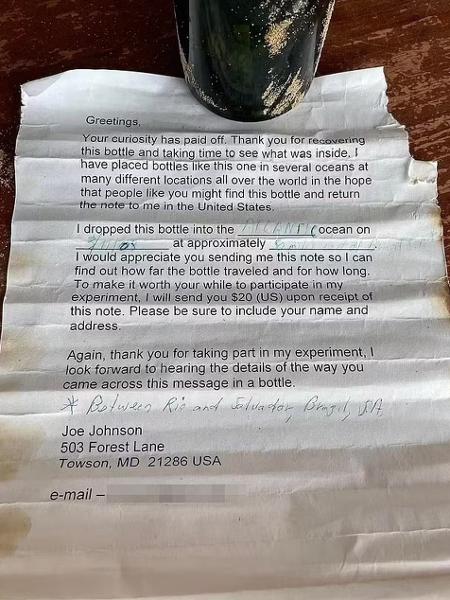 Greetings,
Your curiosity has paid off. Thank you for recovering
this bottle and taking time to see what was inside. I
have placed bottles like this one in several oceans at
many different locations all over the world in the hope
that people like you might find this bottle and return
the note to me in the United States.
I dropped this bottle into the ATLANTIC ocean on
at approximately
I would appreciate you sending me this note so I can
find out how far the bottle traveled and for how long.
To make it worth your while to participate in my
experiment, I will send you $20 (US) upon receipt of
this note. Please be sure to include your name and
address.
Again, thank you for taking part in my experiment, I
look forward to hearing the details of the way you
came across this message in a bottle.
* Between Rio and Salvador, Brazil, SA
Joe Johnson
503 Forest Lane
Towson, MD 21286 USA
e-mail –